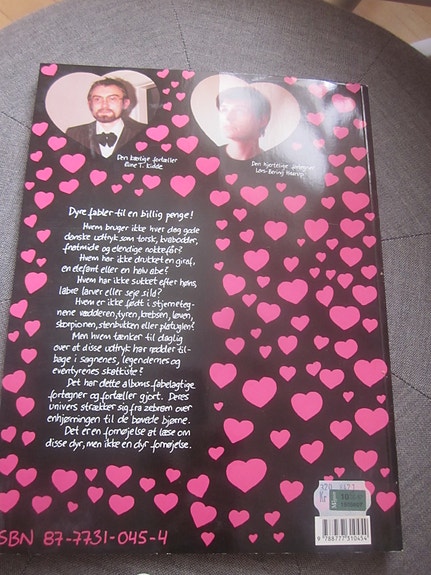 Den kærlige fortæller
Rune T. Kidde
Den hjertelige tegner
Dyre fabler til en billig penge!
Hvem bruger ikke hver dag gode
danske udtryk som torsk, krabodder,
og elendige nokkefår?
Hvem har ikke drukket en giraf,
en elefant eller en halv abe?
Hvem har ikke sukket efter høns,
labre larver eller seje sild?
Hvem er ikke født i stjerneteg-
nene vædderen, tyren, krebsen, løven,
skorpionen, stenbukken eller pløfuglen?
Men hvem tænker til daglig
over at disse udtryk har rødder til-
bage i sagnenes, legendernes og
eventyrenes skatkiste?
Det har dette albums fabelagtige
fortegner og fortæller gjort. Deres
univers strækker sig fra zebraen over
enhjørningen til de bøvede bjørne.
Det er en fornøjelse at læse om
disse dyr, men ikke en dyr fornøjelse.
ISBN 87-7731-045-4
Kr
10
9 788777 310454